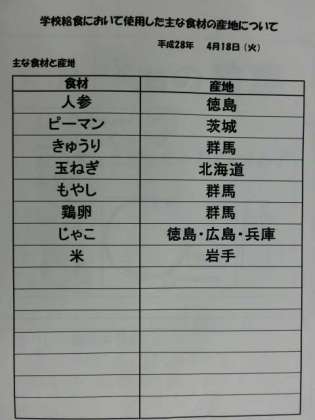 学校給食において使用した主な食材の産地について
平成28年 4月18日(火)
主な食材と産地
食材 産地
人参 徳島
ピーマン 茨城
きゅうり 群馬
玉ねぎ 北海道
もやし 群馬
鶏卵 群馬
じゃこ 徳島・広島・兵庫
米 岩手